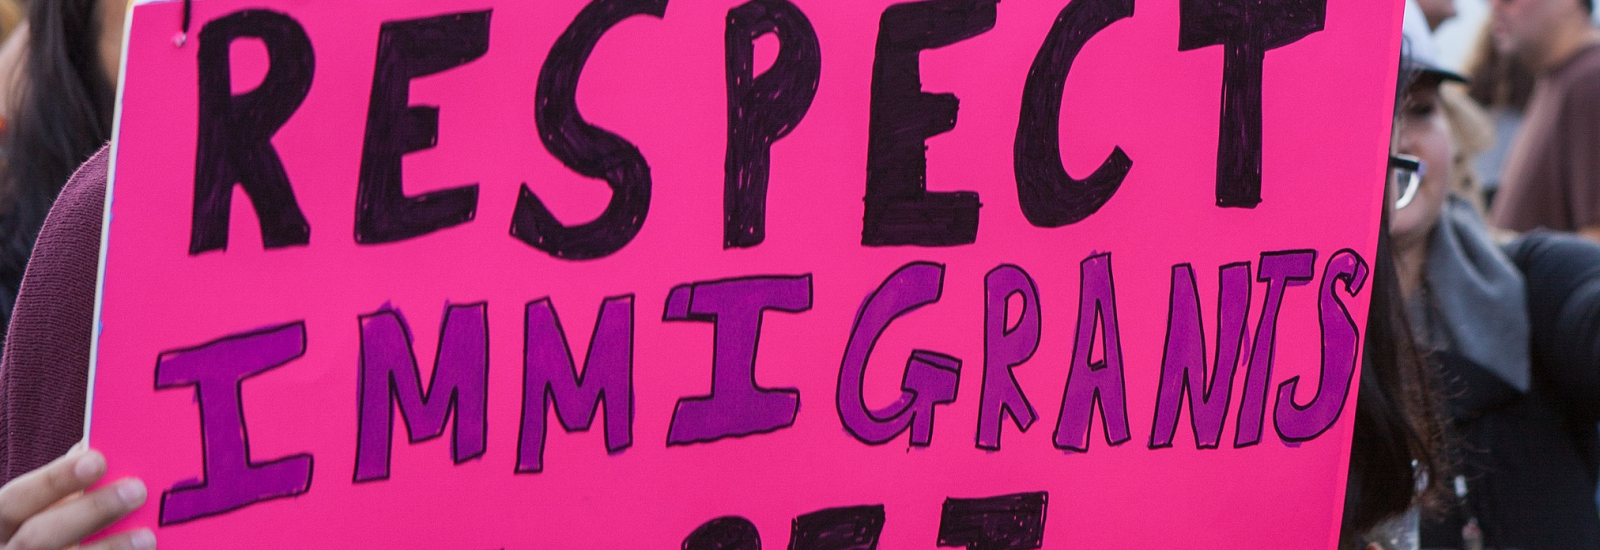 RESPECT
IMMIGRANTS